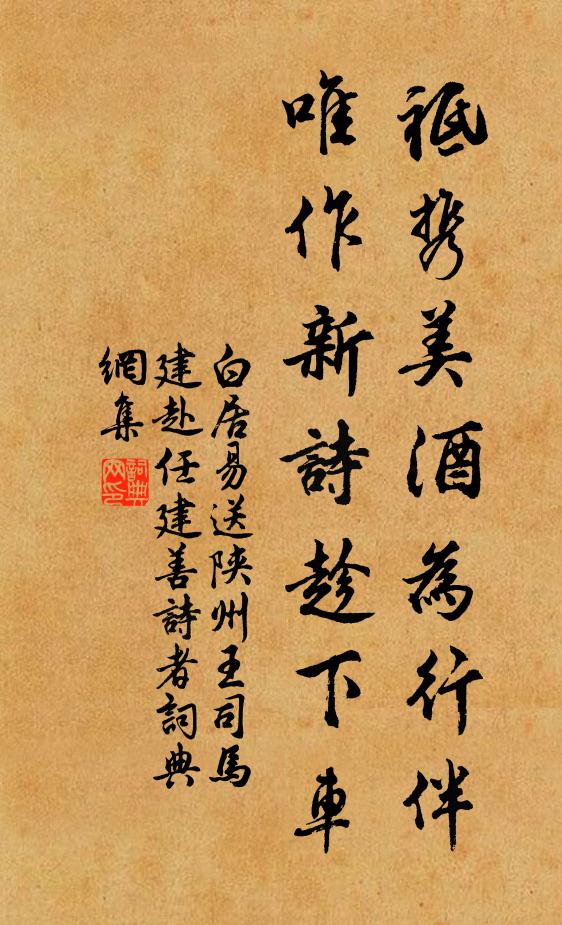 祗携美酒為行伴
唯作新詩趁下車
白居易送陝州王司馬
建赴任建善詩者詞典
網集
詞典
网印